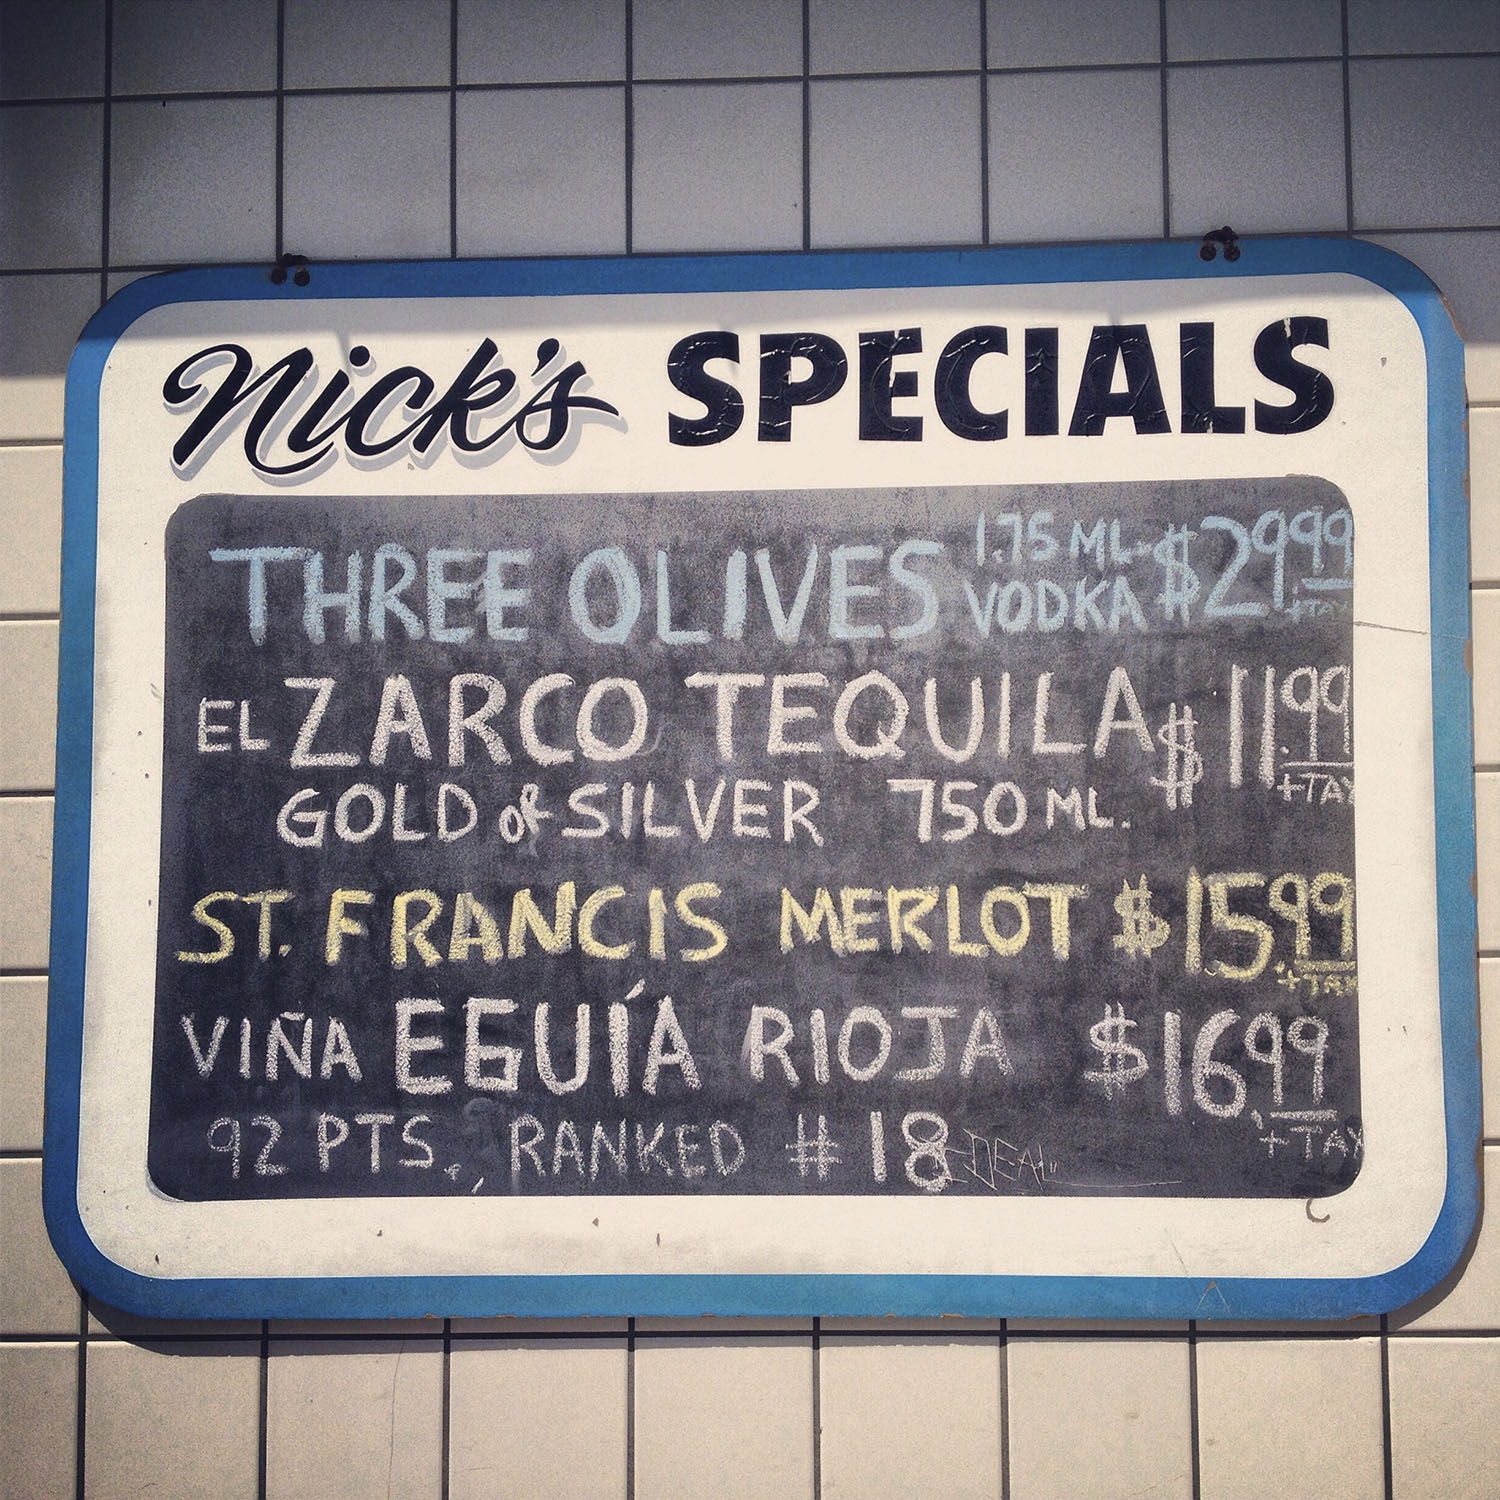 Nick's SPECIALS
THREE OLIVES 1.75 ML. VODKA $29.99 +TAX
EL ZARCO TEQUILA $11.99 +TAX
GOLD or SILVER 750 ML.
ST. FRANCIS MERLOT $15.99 +TAX
VIÑA EGUÍA RIOJA $16.99 +TAX
92 PTS. RANKED #18